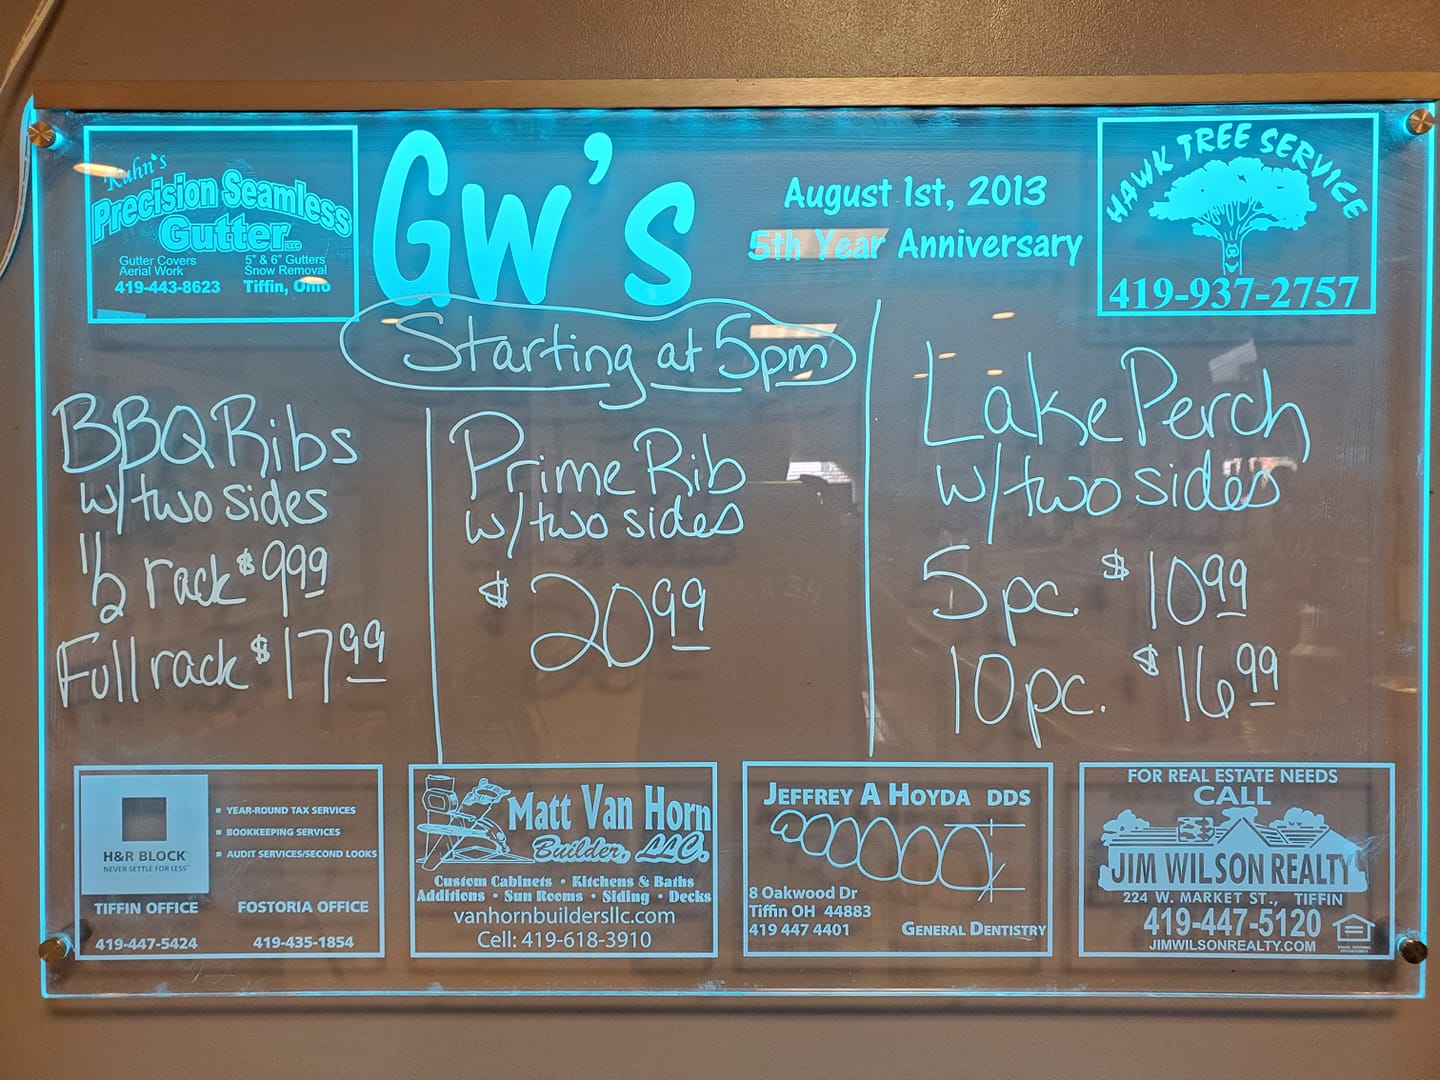 Kuhn's
Precision Seamless
Gutter LLC
Gutter Covers
Aerial Work
419-443-8623
5" & 6" Gutters
Snow Removal
Tiffin, Ohio
GW's
August 1st, 2013
5th Year Anniversary
HAWK TREE SERVICE
419-937-2757
Starting at 5pm
BBQ Ribs
w/two sides
1/2 rack $9.99
Full rack $17.99
Prime Rib
w/two sides
$20.99
Lake Perch
w/two sides
5pc. $10.99
10pc. $16.99
H&R BLOCK
NEVER SETTLE FOR LESS
▪ YEAR-ROUND TAX SERVICES
▪ BOOKKEEPING SERVICES
▪ AUDIT SERVICES/SECOND LOOKS
TIFFIN OFFICE
419-447-5424
FOSTORIA OFFICE
419-435-1854
Matt Van Horn
Builder, LLC.
Custom Cabinets • Kitchens & Baths
Additions • Sun Rooms • Siding • Decks
vanhornbuildersllc.com
Cell: 419-618-3910
JEFFREY A HOYDA DDS
8 Oakwood Dr
Tiffin OH 44883
419 447 4401
GENERAL DENTISTRY
FOR REAL ESTATE NEEDS
CALL
JIM WILSON REALTY
224 W. MARKET ST., TIFFIN
419-447-5120
JIMWILSONREALTY.COM